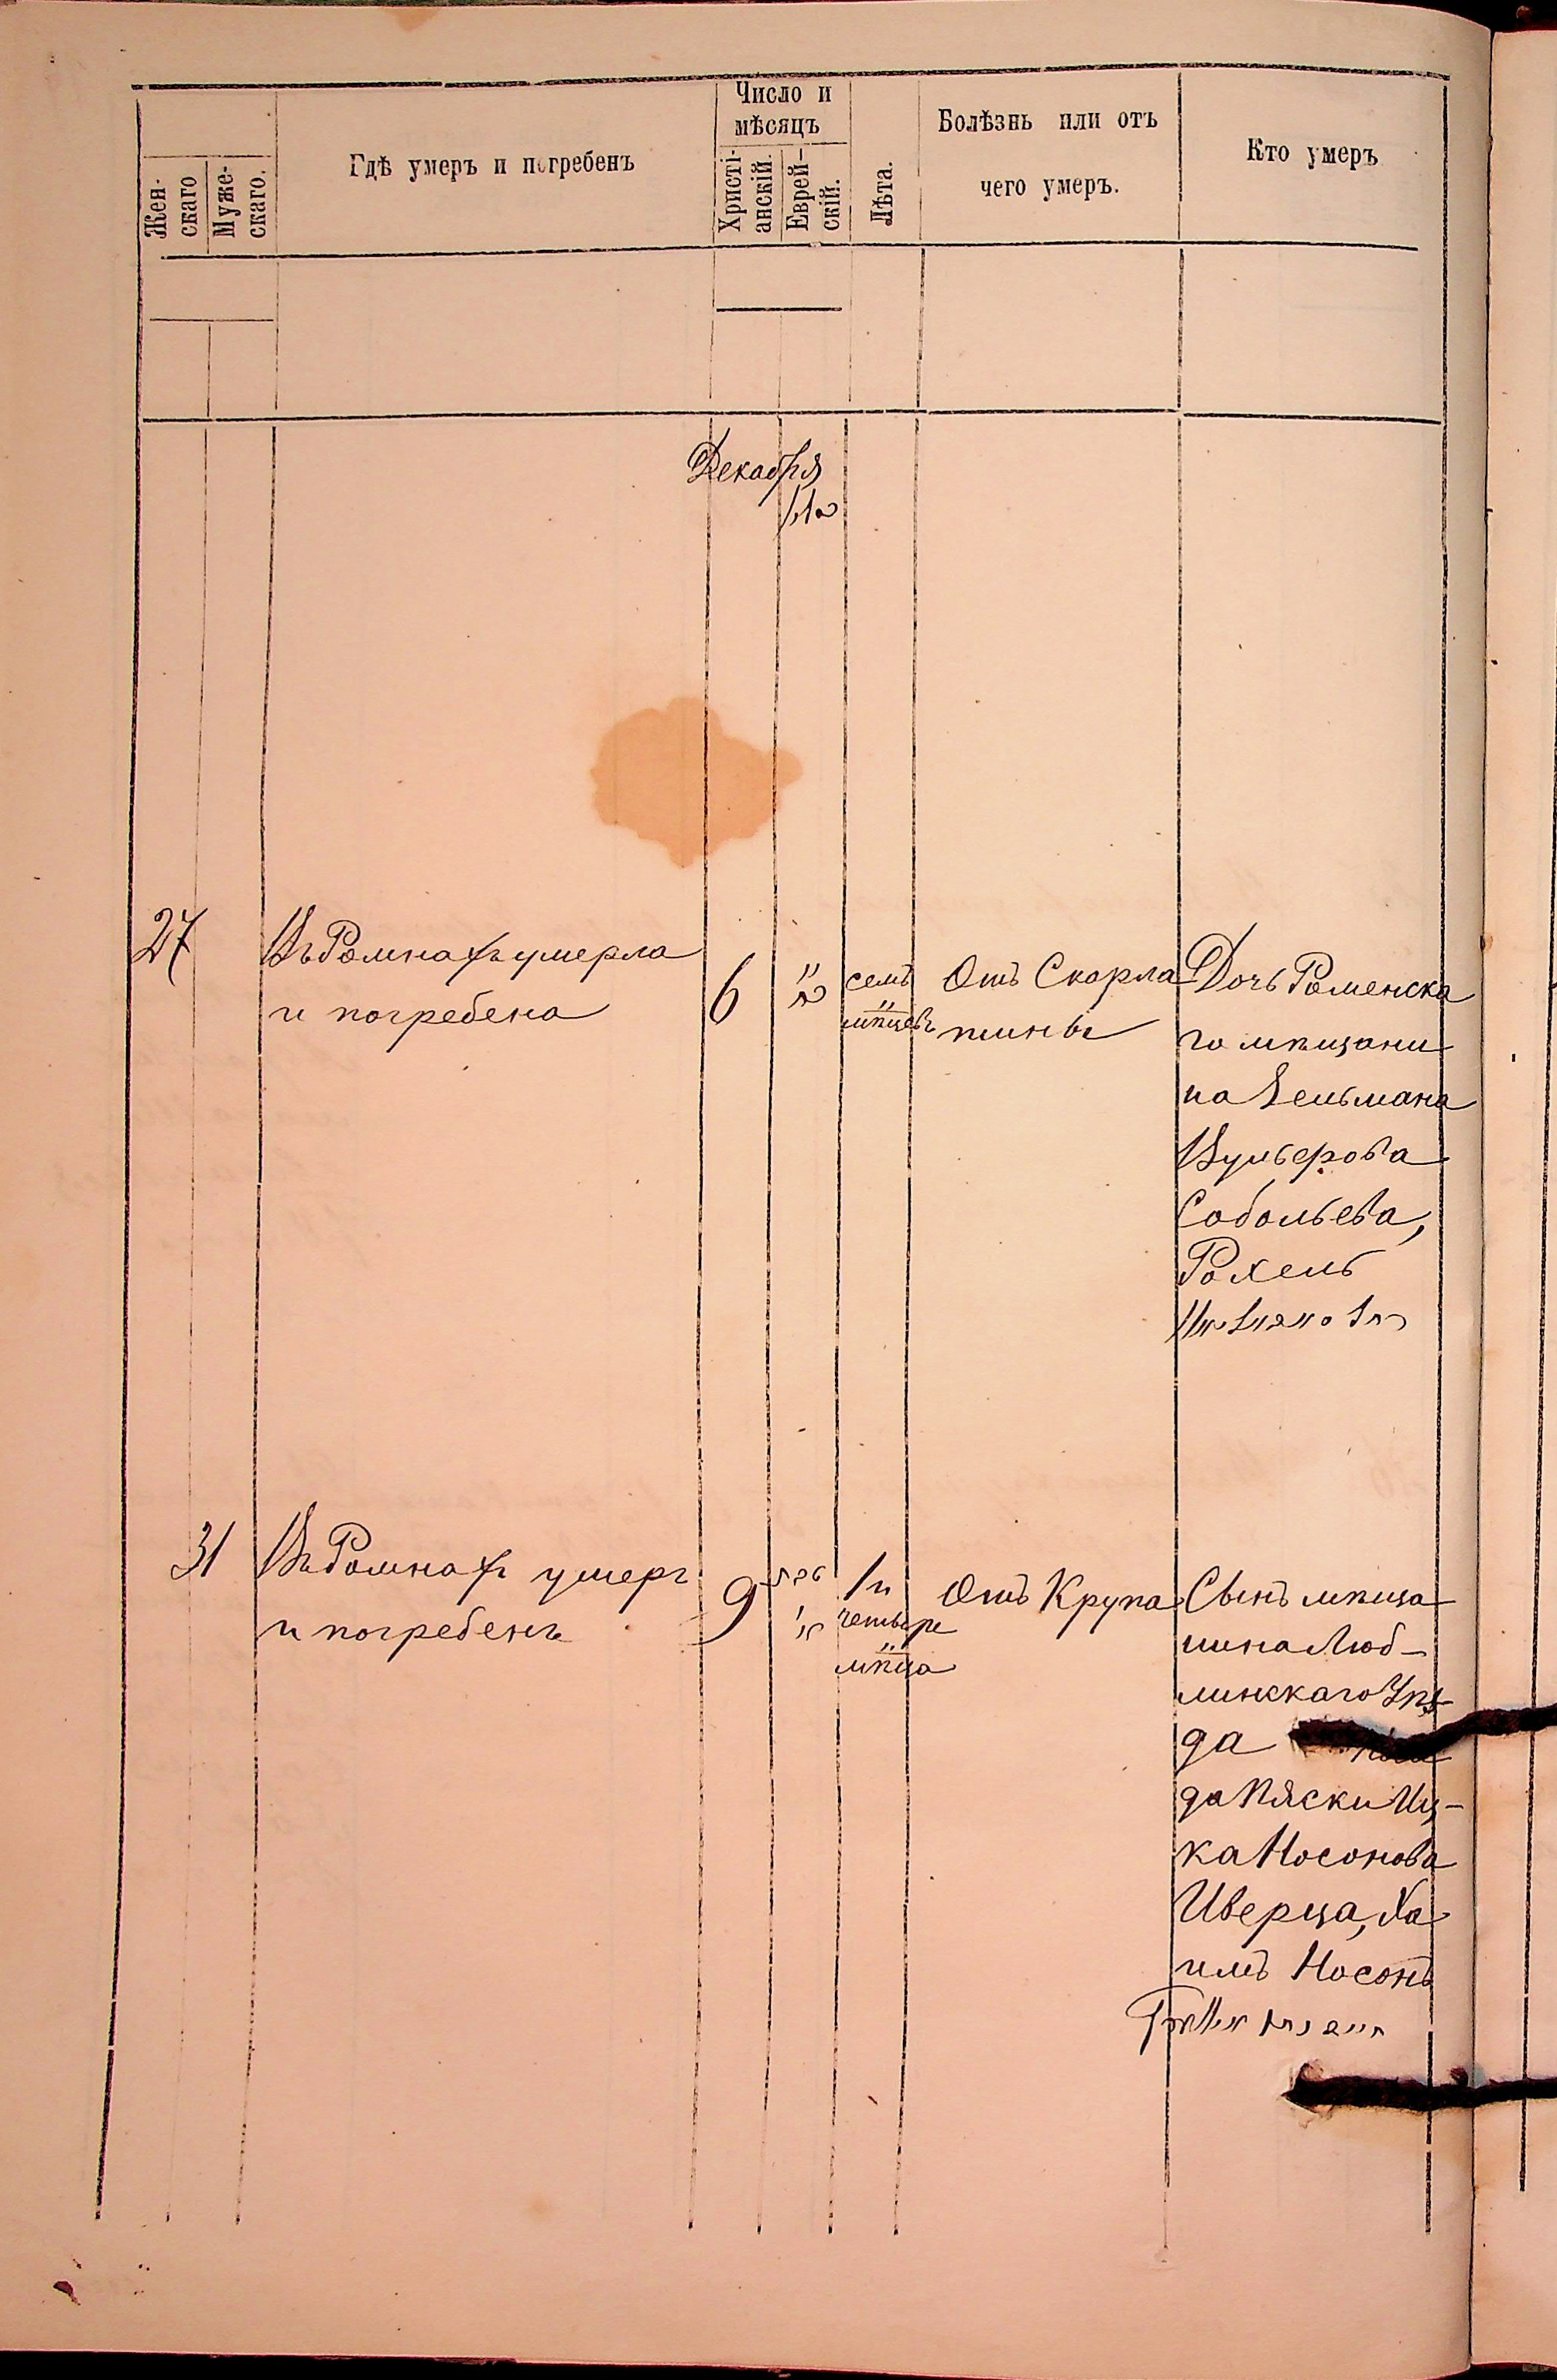 Жен-
скаго
Муже-
скаго.
Гдѣ умеръ и погребенъ
Число и
мѣсяцъ
Христі-
анскій.
Еврей-
скій.
Лѣта.
Болѣзнь или отъ
чего умеръ.
Кто умеръ
Декабря
27
Въ Ромнахъ умерла
и погребена
6
семь
мѣцевъ
Отъ Скарла
тины
Дочь Роменска
го мѣщани
на Зельмана
Вульерова
Собольева,
Рохель
31
Въ Ромнахъ умеръ
и погребенъ
9
1 и
четыре
мѣца
Отъ Крупа
Сынъ мѣща
нина Люб-
линскаго Уѣз-
да
да Пяски Иц-
ка Носонова
Иверца, Ха
имъ Носонъ